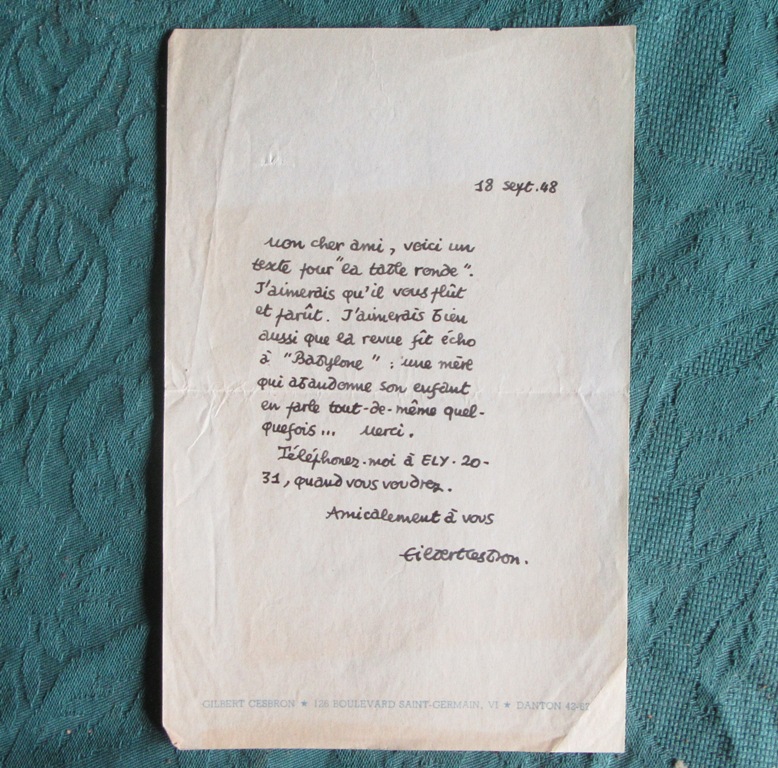 18 sept. 48
Mon cher ami, voici un
texte pour "la table ronde".
J'aimerais qu'il vous plût
et parût. J'aimerais bien
aussi que la revue fît écho
à "Babylone" : une mère
qui abandonne son enfant
en parle tout-de-même quel-
quefois... Merci.
Téléphonez-moi à ELY. 20-
31, quand vous voudrez.
Amicalement à vous
Gilbert Cesbron.
GILBERT CESBRON ★ 126 BOULEVARD SAINT-GERMAIN, VI ★ DANTON